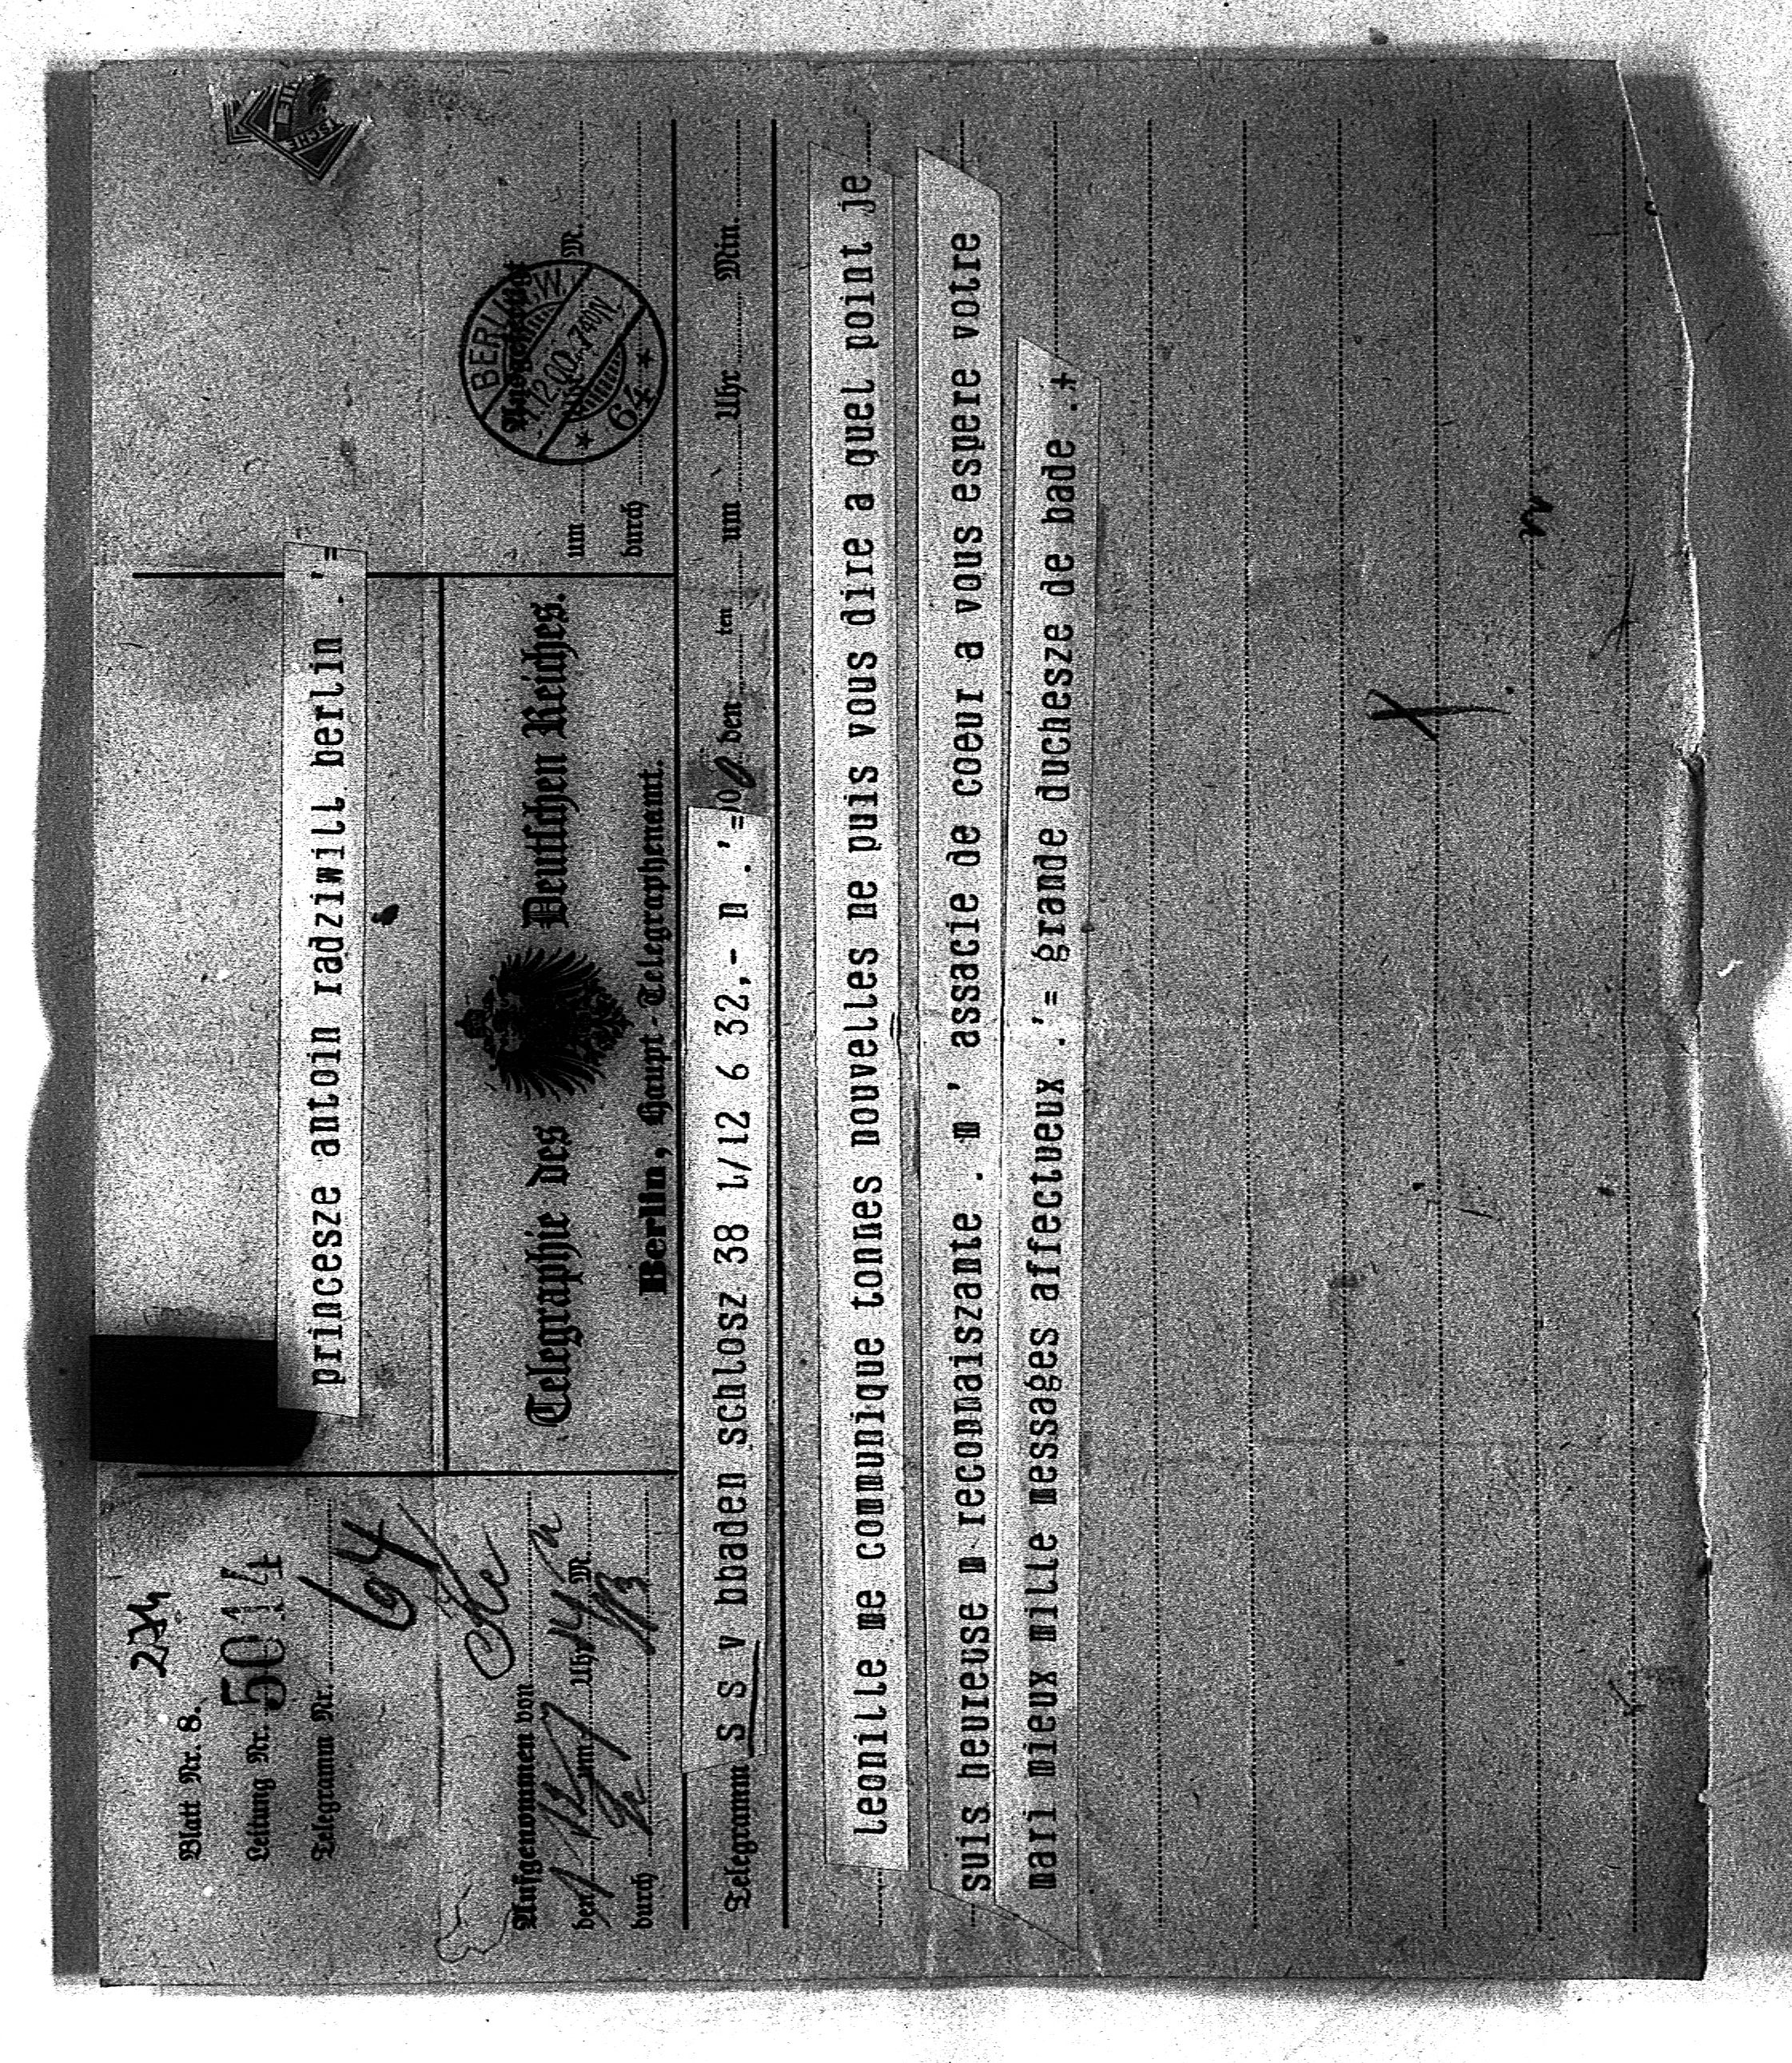 274
Blatt Nr. 8.
Leitung Nr. 5014
Telegramm Nr.
64
princesze antoin radziwill berlin .'=
Aufgenommen von
den 1/12 um 7 Uhr 14 M.
durch
Telegraphie des Deutschen Reiches.
Berlin, Haupt-Telegraphenamt.
um M.
durch
BERLIN W.
1.12.00. 7-
64
Telegramm S S v bbaden schlosz 38 1/12 6 32,- n .'= den ten um Uhr Min.
leonille me communique tonnes nouvelles ne puis vous dire a quel point je
suis heureuse m reconnaiszante . m ' assacie de coeur a vous espere votre
mari mieux mille messages affectueux .'= grande duchesze de bade .+